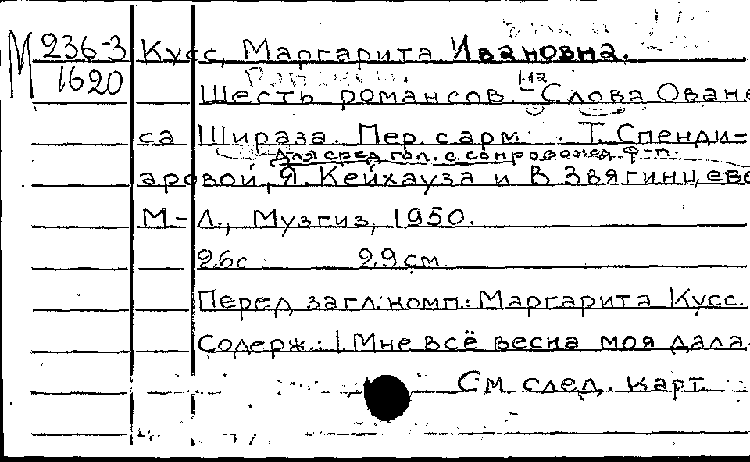 М 236-3 Кусс, Маргарита Ивановна.
1620
Шесть романсов. На Слова Оване
са Шираза. Пер. с арм. Т. Спенди-
для сред. гол. с сопровожд. ф-п.
аровой, Я. Кейхауза и В Звягинцево
М-Л., Музгиз, 1950.
26с 29см
Перед загл. комп.: Маргарита Кусс.
Содерж.: 1 Мне всё весна моя дала
См след. карт.